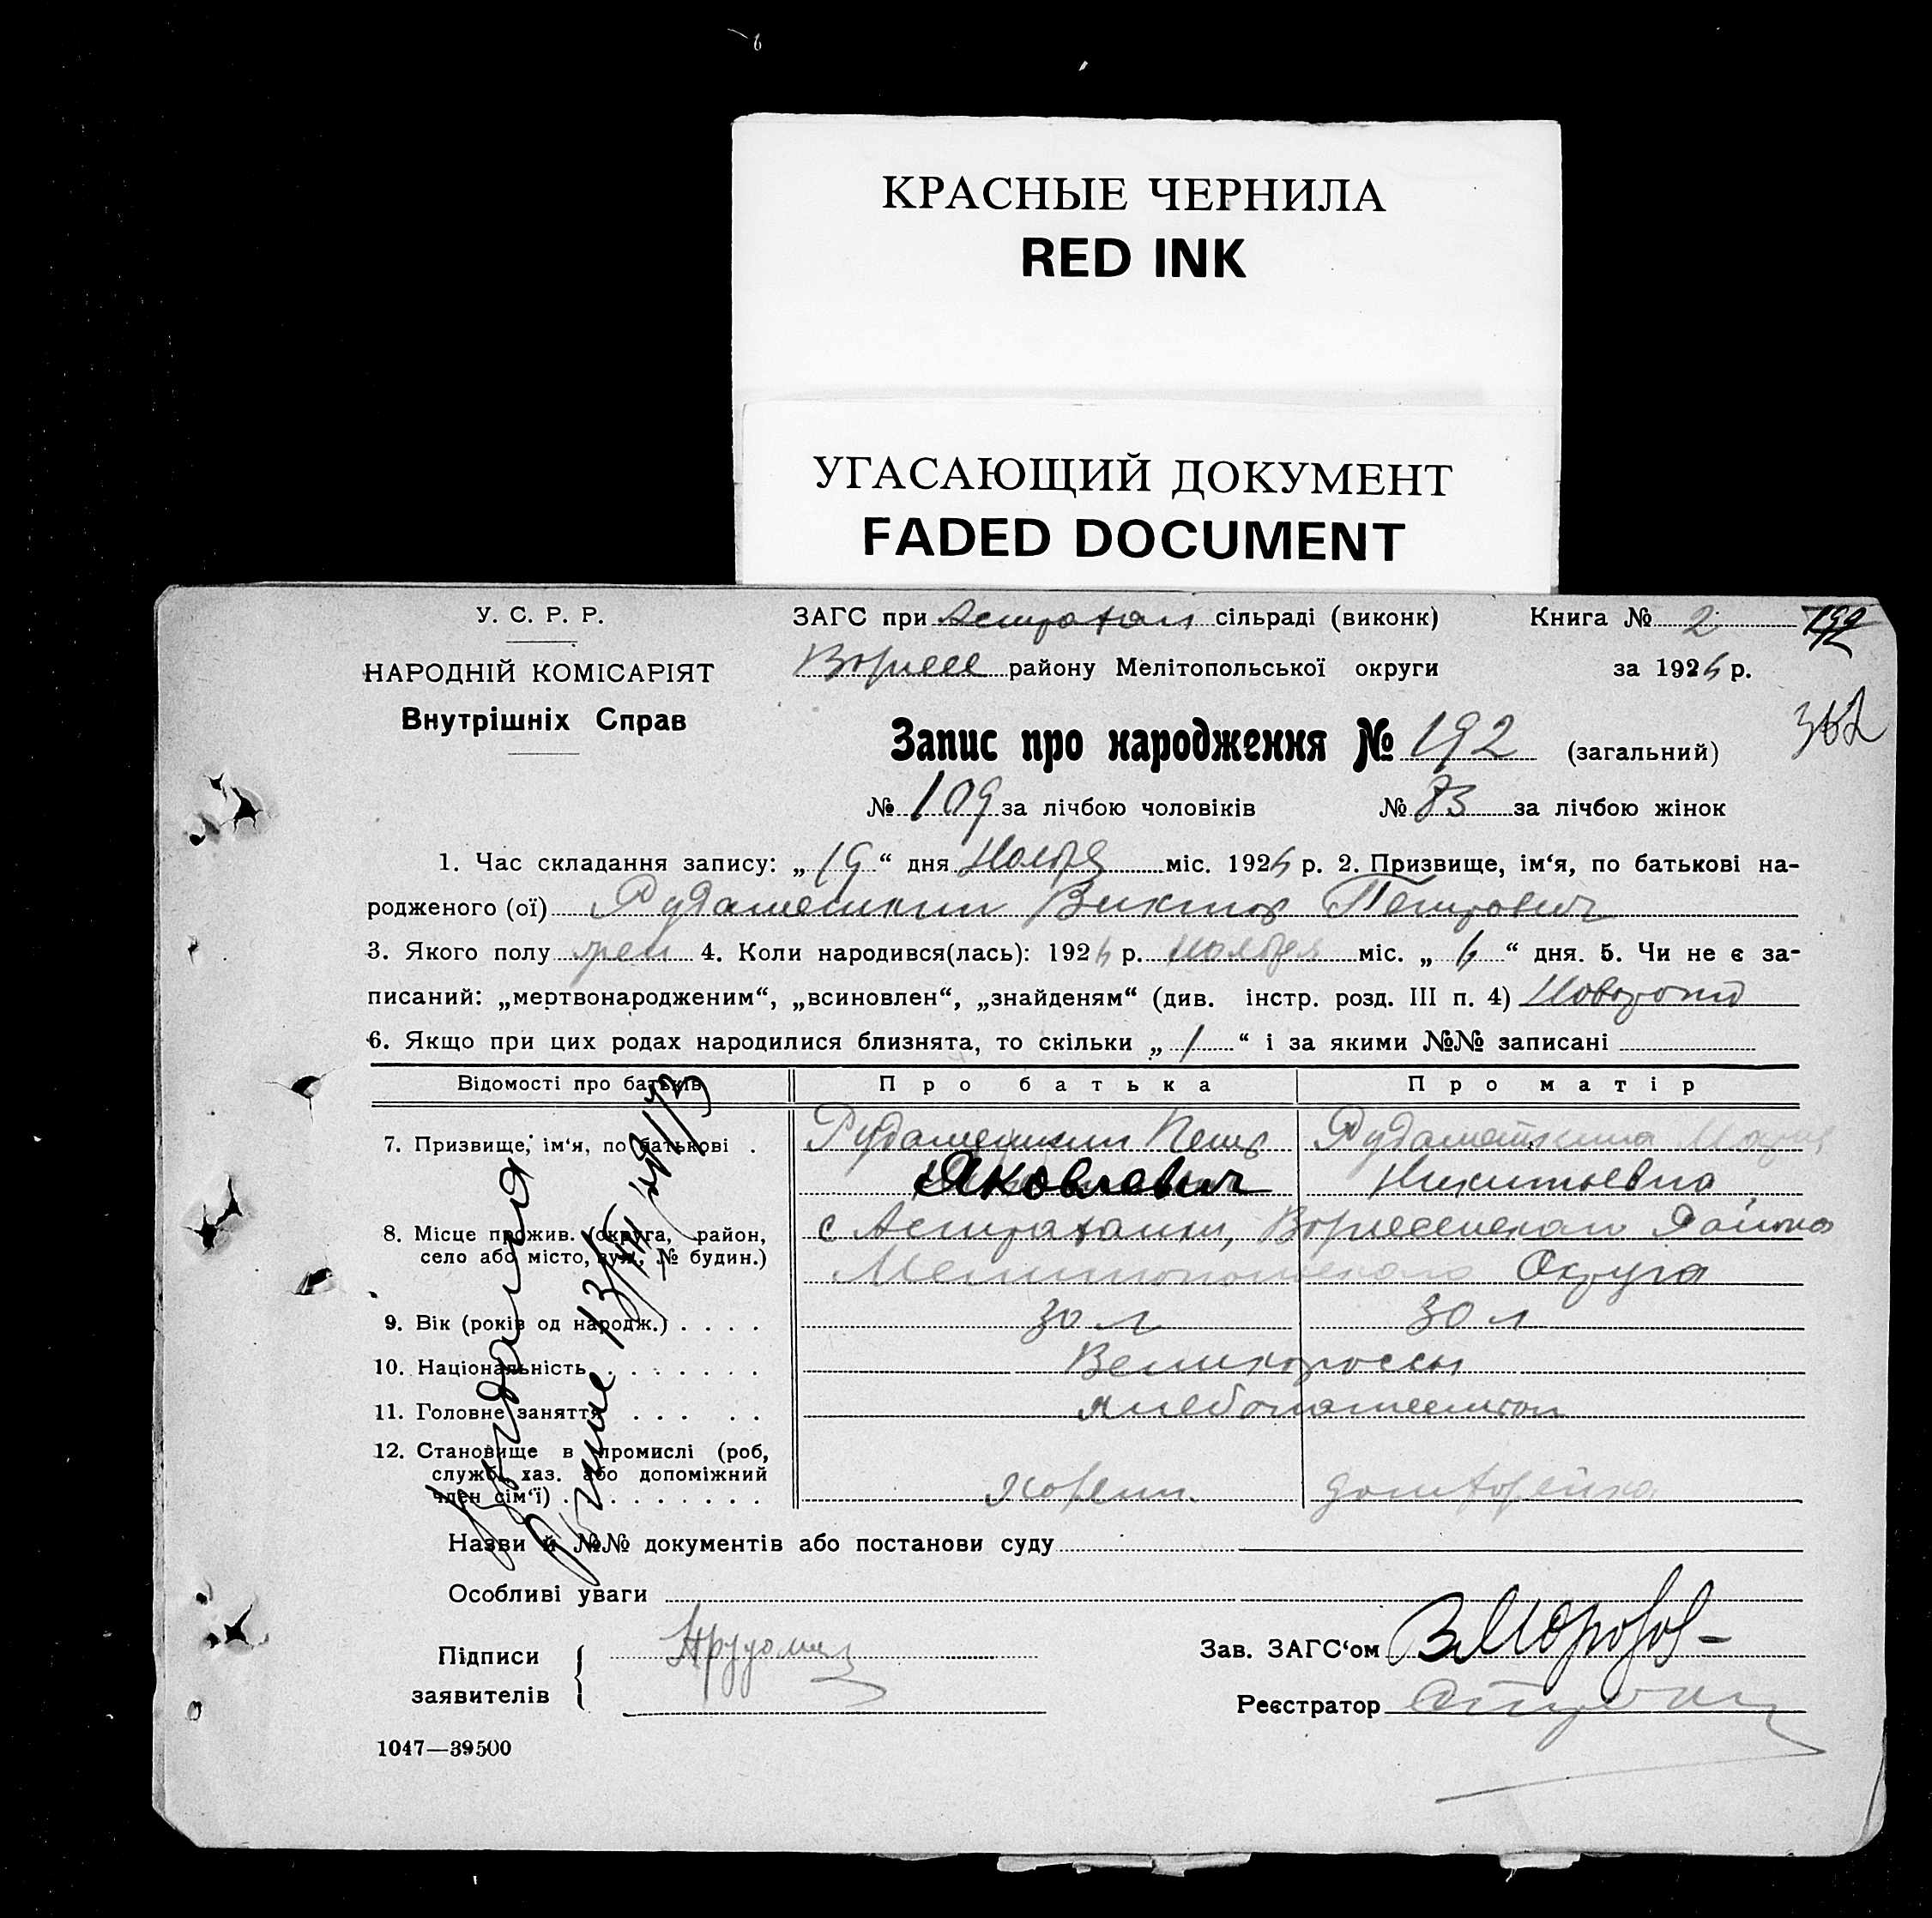 КРАСНЫЕ ЧЕРНИЛА
RED INK
УГАСАЮЩИЙ ДОКУМЕНТ
FADED DOCUMENT
У. С. Р. Р.
НАРОДНІЙ КОМІСАРІЯТ
Внутрішніх Справ
ЗАГС при Астрахан сільраді (виконк)
району Мелітопольської округи
Книга № 2
за 192 р.
192
Запис про народження № 192 (загальний)
№ 109 за лічбою чоловіків № 83 за лічбою жінок
1. Час складання запису: „19“ дня Ноября міс. 192 р. 2. Призвище, ім‘я, по батькові на-
родженого (ої) Рудаметкин Виктор Петрович
3. Якого полу 4. Коли народився(лась): 192 р. ноября міс. „ “ дня. 5. Чи не є за-
писаний: „мертвонародженим“, „всиновлен“, „знайденям“ (див. інстр. розд. III п. 4)
6. Якщо при цих родах народилися близнята, то скільки „1“ і за якими №№ записані
Відомості про батьків Про батька Про матір
7. Призвище, ім‘я, по батькові . Рудаметкин Петр Рудаметкина Мария
Яковлевич Никитьевна
8. Місце прожив. (округа, район, с Астраханки, Района
село або місто, вул, № будин.) Мелитопольского Округа
9. Вік (років од народж.) . . . . 30 л 30 л
10. Національність . . . . . . . Великороссы
11. Головне заняття . . . . . хлебопашеством
12. Становище в промислі (роб,
служб. хаз. або допоміжний
член сім‘ї) . . . . . . . . . хозяин
Назви й №№ документів або постанови суду
Особливі уваги
Підписи
заявителів
Зав. ЗАГС‘ом Морозов
Реєстратор
1047—39500